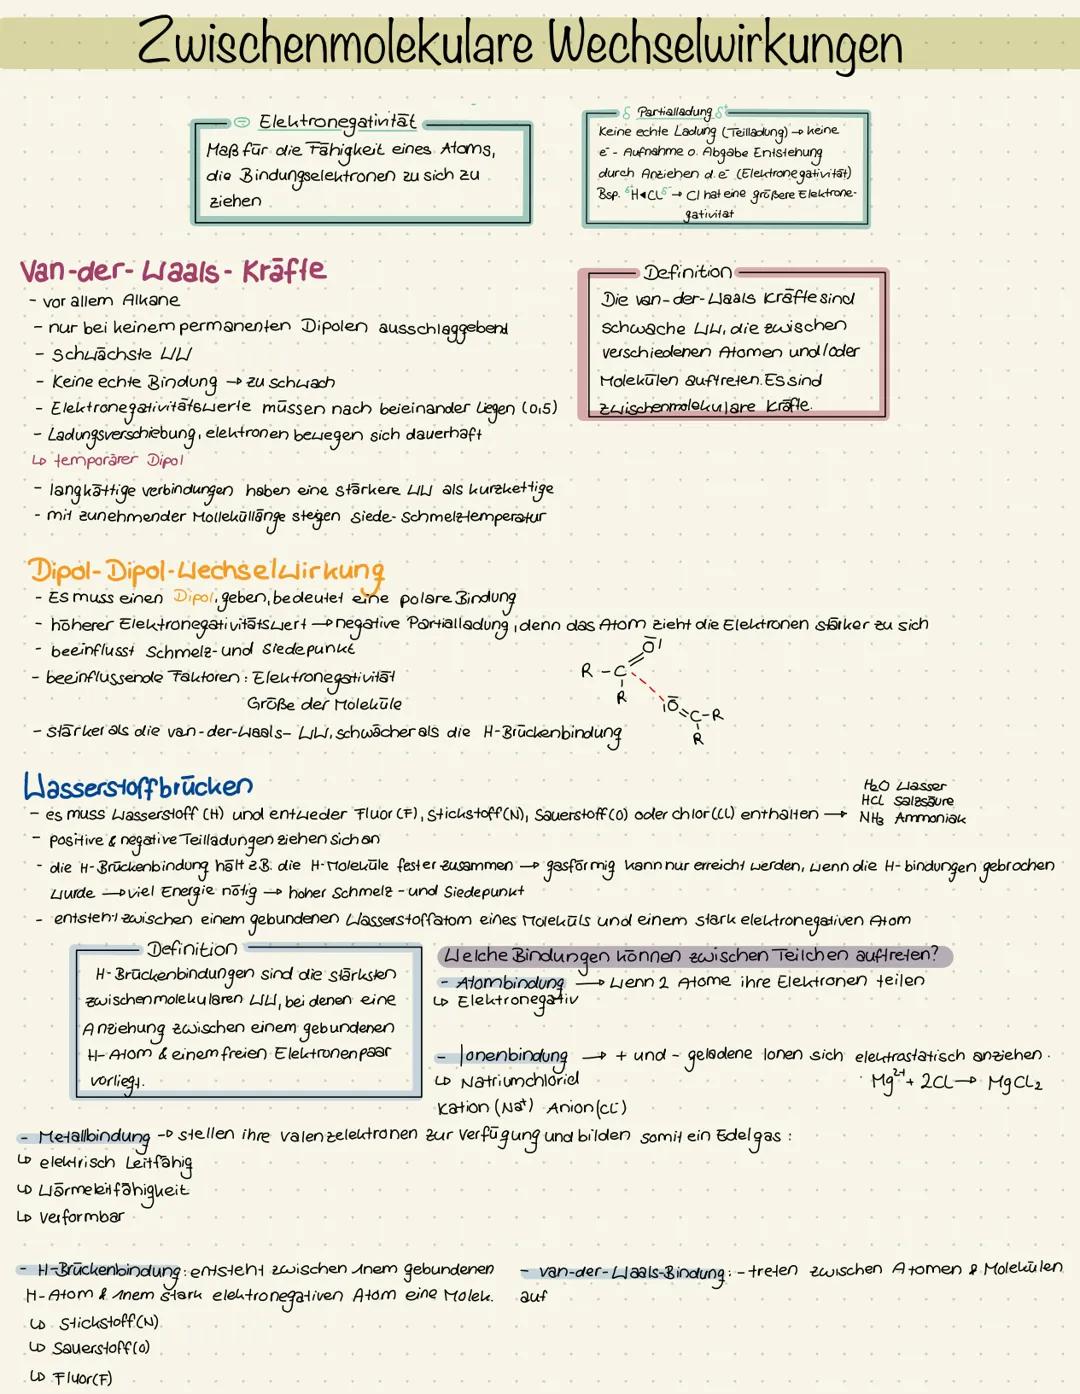 Zwischenmolekulare Wechselwirkungen
⊖ Elektronegativität
Maß für die Fähigkeit eines Atoms,
die Bindungselektronen zu sich zu
ziehen
δ⁻ Partialladung δ⁺
Keine echte Ladung (Teilladung) → keine
e⁻ - Aufnahme o. Abgabe Entstehung
durch Anziehen d. e⁻ (Elektronegativität)
Bsp. δ⁺H◂Clδ⁻ → Cl hat eine größere Elektrone-
gativität
Van-der-Waals-Kräfte
- vor allem Alkane
- nur bei keinem permanenten Dipolen ausschlaggebend
- Schwächste WW
- Keine echte Bindung → zu schwach
- Elektronegativitätswerte müssen nach beieinander liegen (0,5)
- Ladungsverschiebung, elektronen bewegen sich dauerhaft
↳ temporärer Dipol
- langkättige verbindungen haben eine stärkere WW als kurzkettige
- mit zunehmender Mollekülllänge stegen Siede- Schmelztemperatur
Definition
Die van-der-Waals Kräfte sind
schwache WW, die zwischen
verschiedenen Atomen und/oder
Molekülen auftreten. Es sind
zwischenmolekulare Kräfte.
Dipol-Dipol-Wechselwirkung
- Es muss einen Dipol, geben, bedeutet eine polare Bindung
- höherer Elektronegativitätswert → negative Partialladung, denn das Atom zieht die Elektronen stärker zu sich
- beeinflusst Schmelz- und Siedepunkt
- beeinflussende Faktoren: Elektronegativität
Größe der Moleküle
- stärker als die van-der-Waals- WW, schwächer als die H-Brückenbindung
O
R - C
R
O
C-R
R
Wasserstoffbrücken
- es muss Wasserstoff (H) und entweder Fluor (F), Stickstoff (N), Sauerstoff (O) oder chlor (CL) enthalten →
H₂O Wasser
HCL Salzsäure
NH₃ Ammoniak
- positive & negative Teilladungen ziehen sich an
- die H-Brückenbindung hält z.B. die H-Moleküle fester zusammen → gasförmig kann nur erreicht werden, wenn die H-bindungen gebrochen
wurde → viel Energie nötig → hoher Schmelz - und Siedepunkt
- entsteht zwischen einem gebundenen Wasserstoffatom eines Moleküls und einem stark elektronegativen Atom
Definition
H-Brückenbindungen sind die stärksten
zwischenmolekularen WW, bei denen eine
Anziehung zwischen einem gebundenen
H-Atom & einem freien Elektronenpaar
vorliegt.
Welche Bindungen können zwischen Teilchen auftreten?
- Atombindung → Wenn 2 Atome ihre Elektronen teilen
↳ Elektronegativ
- Ionenbindung → + und - geladene Ionen sich elektrostatisch anziehen.
↳ Natriumchlorid
Mg²⁺ + 2CL → MgCL₂
Kation (Na⁺) Anion (CL⁻)
- Metallbindung → stellen ihre valenzelektronen zur verfügung und bilden somit ein Edelgas:
↳ elektrisch Leitfähig
↳ Wärmeleitfähigkeit
↳ Verformbar
- H-Brückenbindung: entsteht zwischen 1nem gebundenen
H-Atom & 1nem stark elektronegativen Atom eine Molek.
↳ Stickstoff (N)
↳ Sauerstoff (O)
↳ Fluor (F)
- van-der-Waals-Bindung: - treten zwischen Atomen & Molekülen
auf